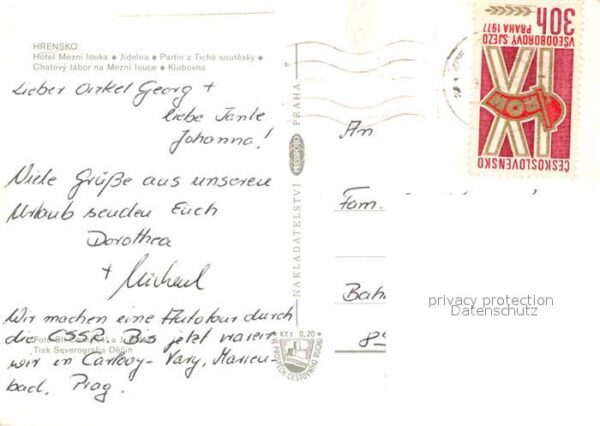 HŘENSKO
Hotel Mezní louka ● Jídelna ● Partie z Tiché soutěsky ●
Chatový tábor na Mezní louce ● Klubovna
Lieber Onkel Georg +
liebe Tante
Johanna!
Viele Grüße aus unseren
Urlaub senden Euch
Dorothea
+ Michael
Wir machen eine Autotour durch
die ČSSR. Bis jetzt waren
wir in Carlovy-Vary, Marien-
bad, Prag.
Foto
Tisk Severografia Děčín
NAKLADATELSTVÍ PRESSFOTO PRAHA
Kčs 0,20
An
Fam.
Bah
8
30h
VŠEODBOROVÝ SJEZD
PRAHA 1977
IX
ROH
ČESKOSLOVENSKO
privacy protection
Datenschutz